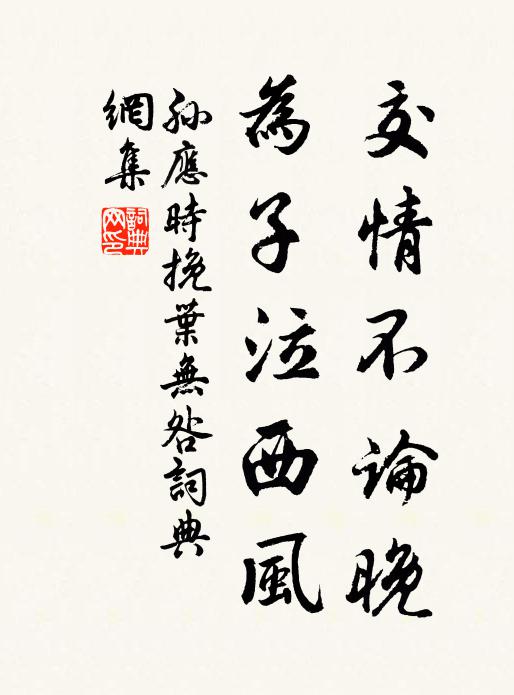 交情不論晚
為子泣西風
孫應時挽葉無咎詞典
網集
詞典
网印